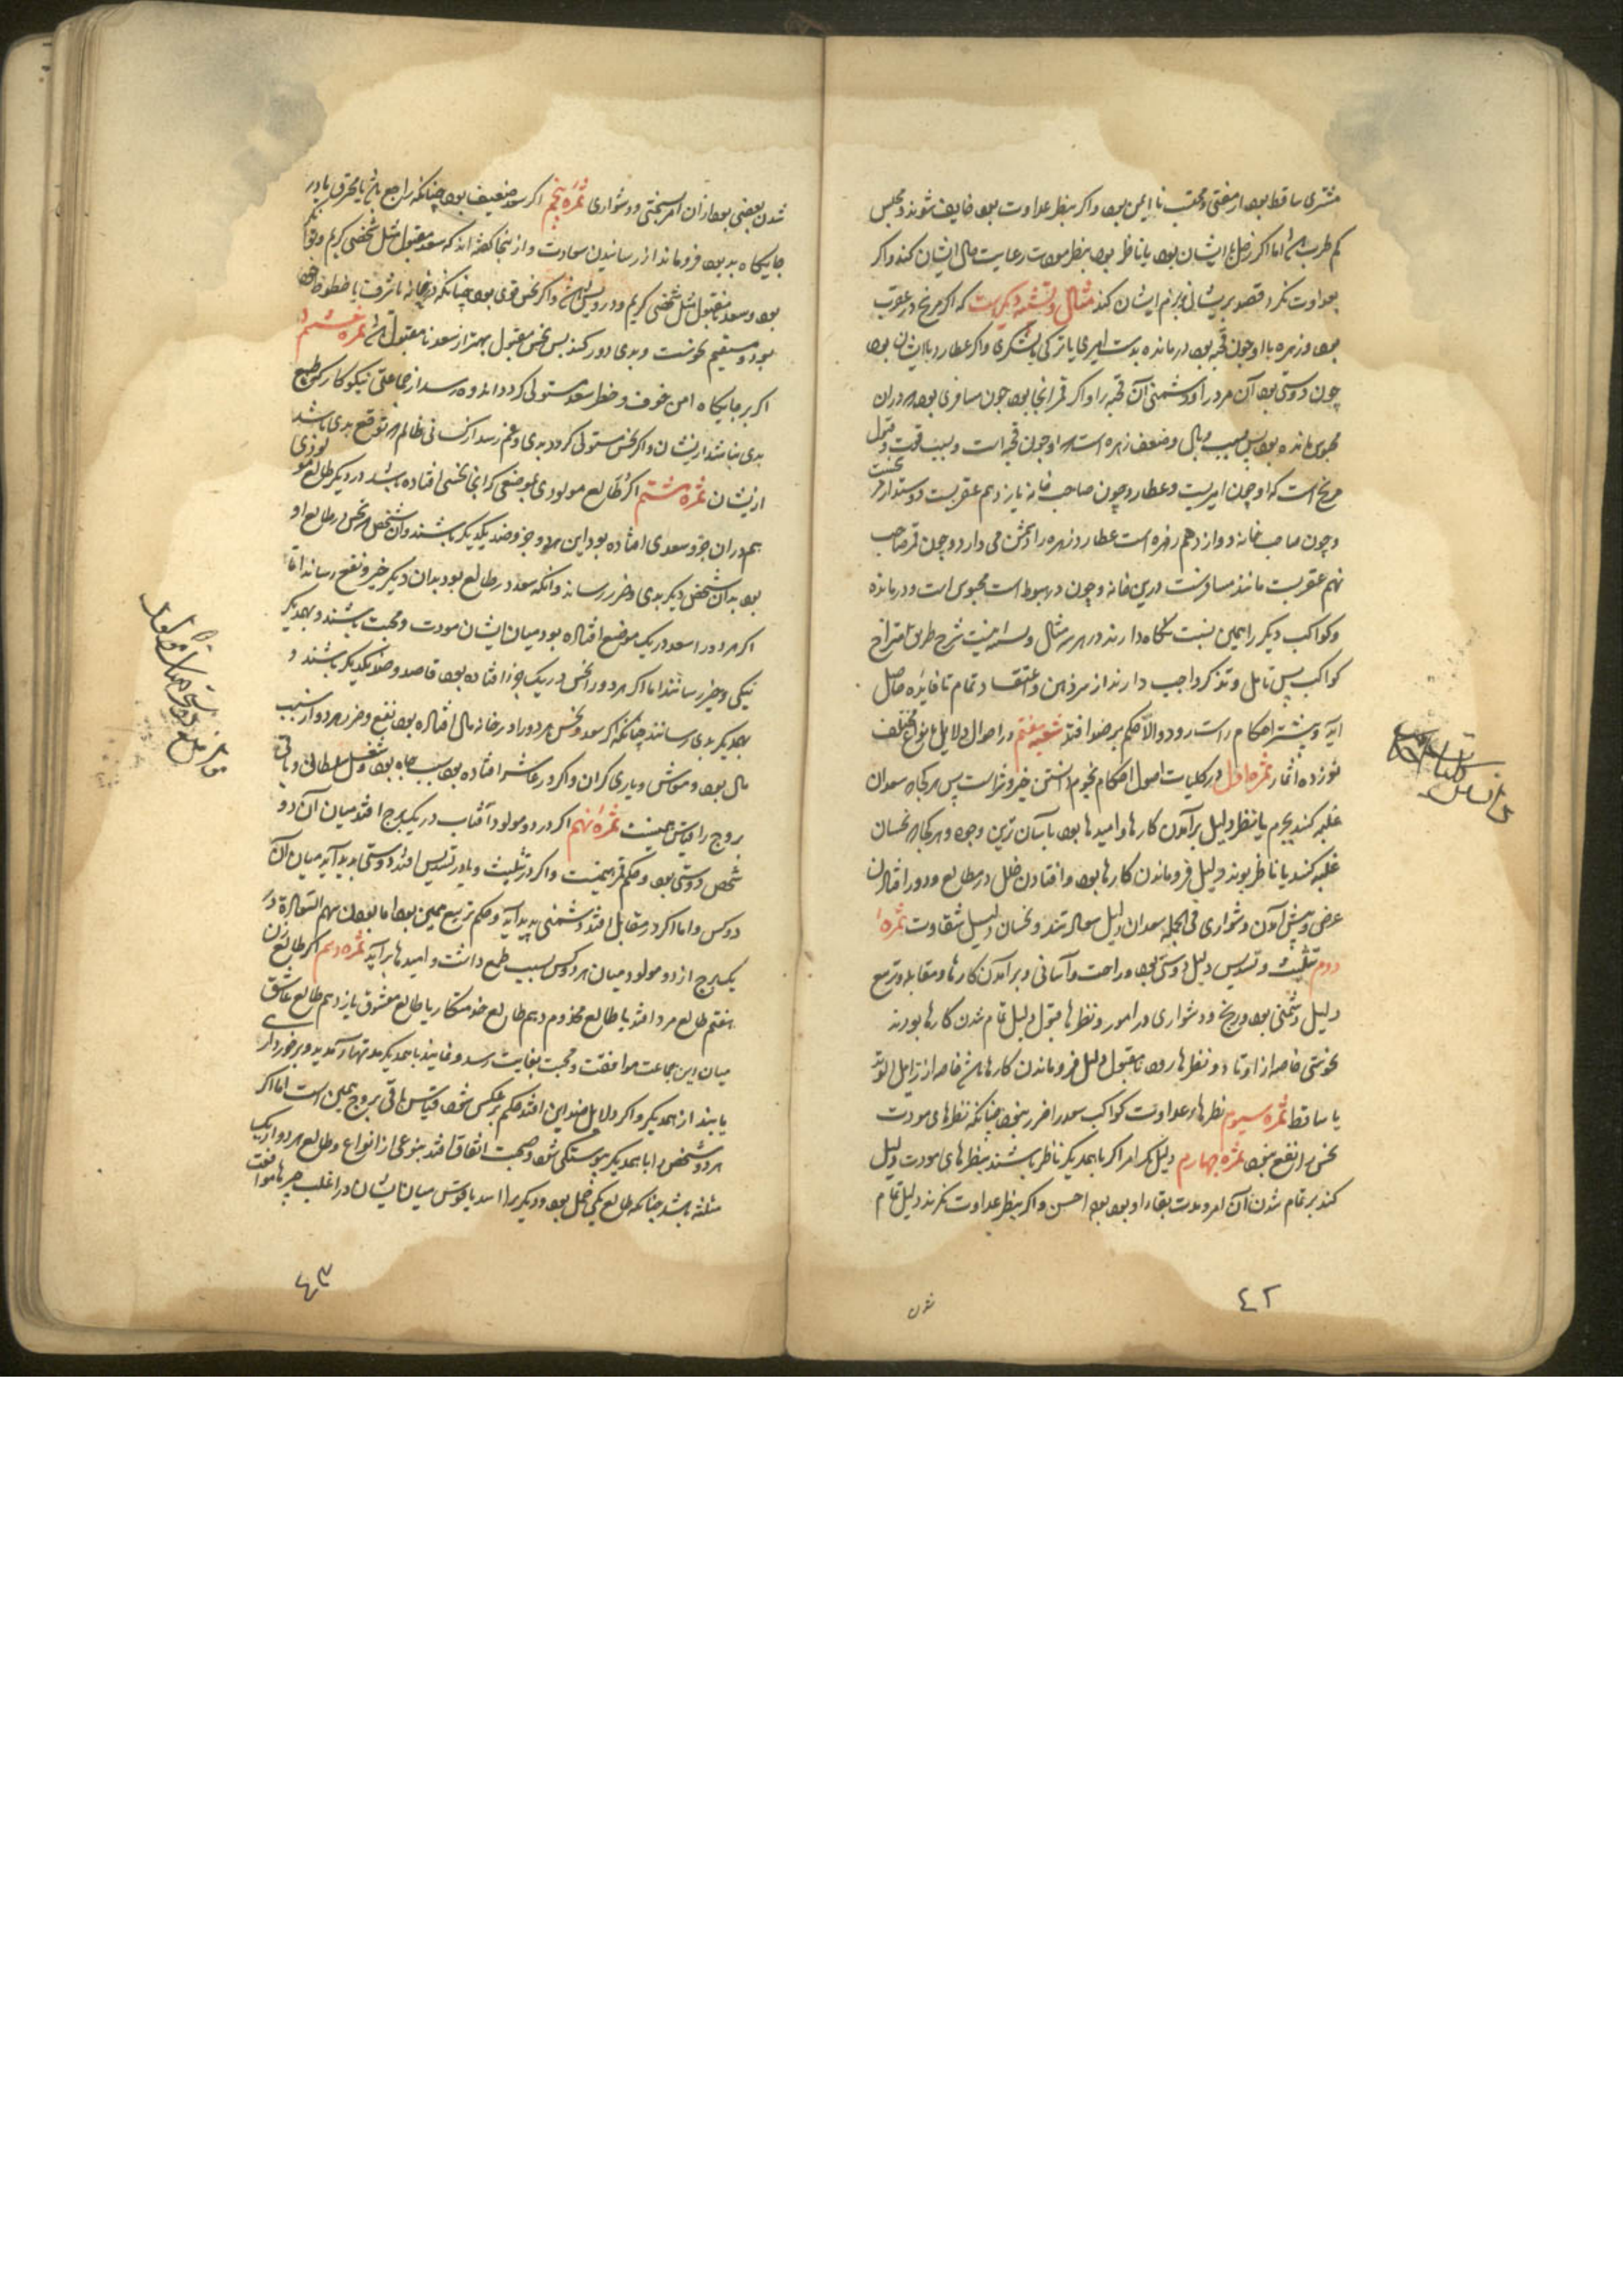 مشتری ساقط بود از مفتی و محتسب نا ایمن بود و اگر بنظر عداوت بود خایف شوند و مجلس
کم طرب باشد اما اکر زحل با ایشان بود یا ناظر بود بنظر مودت رعایت حال ایشان کند و اکر
بعداوت نکرد قصد پریشانی بزم ایشان کند مثال و تشبیه دیکرست که اکر مریخ در عقرب
بود و زهره با او چون قحبه بود درمانده بدست امیری یا ترکی یا لشکری و اکر عطارد با ایشان بود
چون دوستی بود آن مرد را و دشمنی آن قحبه را و اکر قمر آنجا بود چون مسافری بود که در آن
محبوس مانده بود پس بسبب وبال و ضعف زهره است که او چون قحبه است و بسبب قوت و قبول
مریخ است که او چون امیریست و عطارد چون صاحب خانه یازدهم عقربست دوستدار
و چون صاحب خانه دوازدهم زهره است عطارد زهره را دشمن می دارد و چون قمر صاحب
نهم عقربست مانند مسافرست درین خانه و چون در هبوط است محبوس است و درمانده
و کواکب دیکر را همین نسبت نکاه دارند در هر سه مثال و اینست شرح طریق امتزاج
کواکب پس تامل و تذکر واجب دارند از سر ذهن و اعتقاد تمام تا فایده حاصل
آید و بیشتر احکام راست رود و الا حکم بر ضد افتد شعبه هفتم در احوال دلایل بانواع مختلف
نوزده اثمار ثمره اول در کلیات اصول احکام نجوم دانستن خیر و شر است پس هر کجا که سعدان
غلبه کنند بجرم یا بنظر دلیل برآمدن کارها و امیدها بود بآسان ترین وجوه و هر کجا که نحسان
غلبه کنند یا ناظر بوند دلیل فروماندن کارها بود و افتادن خلل در مطالع و دور افتادن
غرض و پیش آمدن دشواری فی الجمله سعدان دلیل سعادتند و نحسان دلیل شقاوت ثمره
دوم تثلیث و تسدیس دلیل دوستی بود و راحت و آسانی و برآمدن کارها و مقابله و تربیع
دلیل دشمنی بود و رنج و دشواری در امور و نظرها قبول دلیل تمام شدن کارها بودند
بخوشی خاصه از اوتاد و نظرها رد نا مقبول دلیل فروماندن کارها باشد خاصه از زایل الوتد
یا ساقط ثمره سیوم نظرهاء عداوت کواکب سعد را ضرر نبخود چنانکه نظرهای مودت
نحس را نفع نبخود ثمره چهارم دلیل هر امر اکر با همدیکر ناظر باشند بنظرهای مودت دلیل
کند بر تمام شدن آن امر و مدت بقاء او بوجه احسن و اکر بنظر عداوت نکرند دلیل تمام
شدن
٤٢
شدن بعضی بود از آن امر بسختی و دشواری ثمره پنجم اکر سعد ضعیف بود چنانکه راجع باشد یا محترق یا در
جایکاه بد بود فرو ماند از رسانیدن سعادت و از اینجا کفته اند که سعد مقبول مثل شخصی کریم و توانکر
بود و سعد نا مقبول مثل شخصی کریم و درویش باشد و اکر نحس قوی بود چنانکه در خانه یا شرف یا حظوظ خود
بود و مستقیم نحوست و بدی دور کند پس نحس مقبول بهتر از سعد نا مقبول باشد ثمره ششم
اکر بر جایکاه امن خوف و خطر سعد مستولی کردد اندوه رسد از جماعتی نیکوکار که طمع
بدی نباشد از یشان و اکر نحس مستولی کردد بدی و غم رسد از کسانی ظالم که توقع بدی باشد
از یشان ثمره هشتم اکر طالع مولودی بموضعی کز آنجا نحسی افتاده باشد در دیکر طالع مولودی
هم در آن جزو سعدی افتاده بود این هر دو جزو ضد یکدیکر باشند و آن شخص که نحس در طالع او
بود بدان شخص دیکر بدی و ضرر رساند و آنکه سعد در طالع بود بدان دیکر خیر و نفع رساند اما
اکر هر دو را سعد در یک موضع افتاده بود میان ایشان مودت و محبت باشند و بهمدیکر
نیکی و خیر رسانند اما اکر هر دو را نحس در یک جزو افتاده بود قاصد و ضد یکدیکر باشند و
بهمدیکر بدی رسانند چنانکه اکر سعد و نحس هر دو را در خانه مال افتاده بود نفع و ضرر هر دو از سبب
مال بود و معاش و یاری کران و اکر در عاشر افتاده بود بسبب جاه بود و شغل سلطانی و باقی
بروج را قیاس همینست ثمره نهم اکر در دو مولود آفتاب در یک برج افتد میان آن دو
شخص دوستی بود و حکم قمر همینست و اکر در تثلیث و یا در تسدیس افتد دوستی پدید آید میان آن
دو کس و اما اکر در مقابله افتد دشمنی پدید آید و حکم تربیع همین بود اما بودن سهم السعاده در
یک برج از دو مولود میان هر دو کس بسبب طمع داشت و امیدها برآید ثمره دهم اکر طالع زن
هفتم طالع مرد افتد یا طالع مخدوم دهم طالع خدمتکار یا طالع معشوق یازدهم طالع عاشق
میان این جماعت موافقت و محبت بغایت رسد و فایده با همدیکر
یابند از همدیکر و اکر دلایل ضد این افتد حکم برعکس شود قیاس باقی بروج همین است اما اکر
هر دو شخص را با همدیکر پیوستکی شود و صحبت اتفاق افتد بنوعی از انواع و طالع هر دو از یک
مثلثه باشد چنانکه طالع یکی حمل بود و دیکری را اسد یا قوس میان ایشان در اغلب چیزها موافقت
٤٣